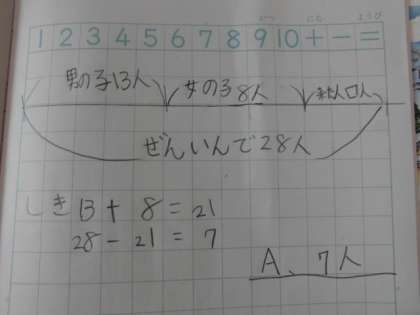 1 2 3 4 5 6 7 8 9 10 + - =
男の子13人 女の子8人 □人
ぜんいんで28人
しき 13 + 8 = 21
28 - 21 = 7
A、7人